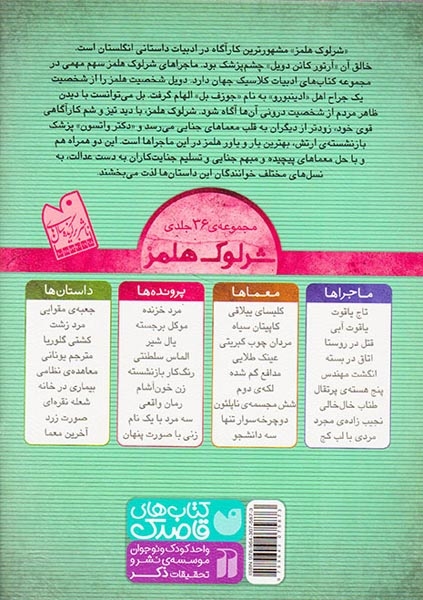 «شرلوک هلمز» مشهورترین کارآگاه در ادبیات داستانی انگلستان است.
خالق آن «آرتور کانن دویل» چشم‌پزشک بود. ماجراهای شرلوک هلمز سهم مهمی در
مجموعه کتاب‌های ادبیات کلاسیک جهان دارد. دویل شخصیت هلمز را از شخصیت
یک جراح اهل «ادینبورو» به نام «جوزف بل» الهام گرفت. بل می‌توانست با دیدن
ظاهر مردم از شخصیت درونی آن‌ها آگاه شود. شرلوک هلمز، با دید تیز و شم کارآگاهی
قوی خود، زودتر از دیگران به قلب معماهای جنایی می‌رسد و «دکتر واتسون» پزشک
بازنشسته‌ی ارتش، بهترین یار و یاور هلمز در این ماجراها است. این دو همراه هم
و با حل معماهای پیچیده و مبهم جنایی و تسلیم جنایت‌کاران به دست عدالت، به
نسل‌های مختلف خوانندگان این داستان‌ها لذت می‌بخشند
مجموعه‌ی ۳۶ جلدی
شرلوک هلمز
ماجراها
تاج یاقوت
یاقوت آبی
قتل در روستا
اتاق در بسته
انگشت مهندس
پنج هسته‌ی پرتقال
طناب خال‌خالی
نجیب زاده‌ی مجرد
مردی با لب کج
معماها
کلیسای ییلاقی
کاپیتان سیاه
مردان چوب کبریتی
عینک طلایی
مدافع گم شده
لکه‌ی دوم
شش مجسمه‌ی ناپلئون
دوچرخه‌سوار تنها
سه دانشجو
پرونده‌ها
مرد خزنده
موکل برجسته
یال شیر
الماس سلطنتی
رنگ‌کار بازنشسته
زن خون‌آشام
رمان واقعی
سه مرد با یک نام
زنی با صورت پنهان
داستان‌ها
جعبه‌ی مقوایی
مرد زشت
کشتی گلوریا
مترجم یونانی
معاهده‌ی نظامی
بیماری در خانه
شعله نقره‌ای
صورت زرد
آخرین معما
کتاب‌های
قاصدک
واحد کودک و نوجوان
موسسه‌ی نشر و
تحقیقات ذکر